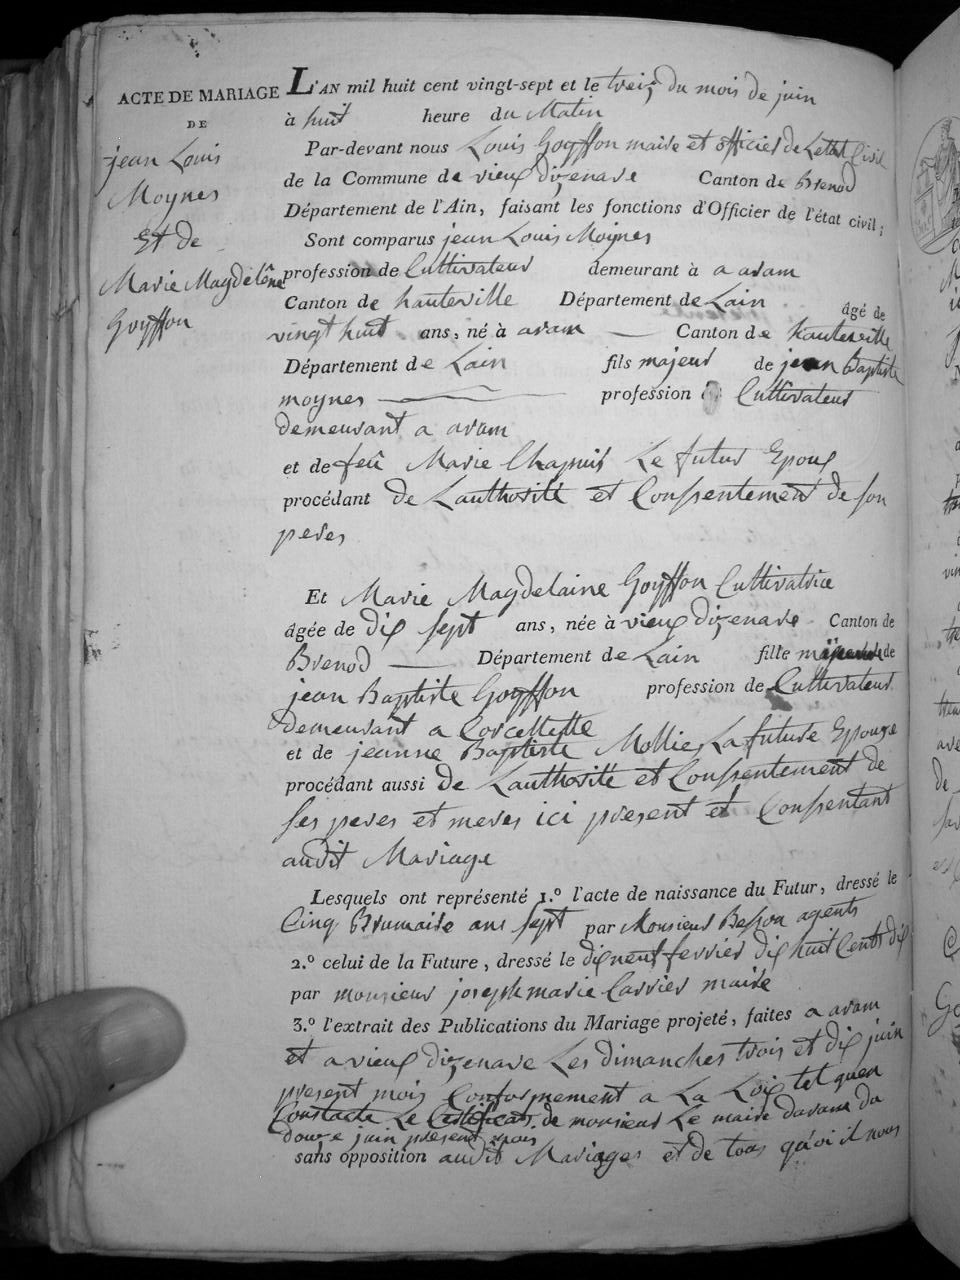 ACTE DE MARIAGE
DE
jean Louis
Moynes
Et de
Marie Magdelêne
Goyffon
L'AN mil huit cent vingt-sept et le treiz du mois de juin
à huit heure du Matin
Par-devant nous Louis Goyffon maire et officier de Letat Civil
de la Commune de vieux dizenave Canton de Brenod
Département de l'Ain, faisant les fonctions d'Officier de l'état civil;
Sont comparus jean Louis Moynes
profession de Cultivateur demeurant à a aram
Canton de hauteville Département de Lain âgé de
vingt huit ans, né à aram Canton de hauteville
Département de Lain fils majeur de jean Baptiste
moynes profession Cultivateur
demeurant a aram
et de feû Marie Chapuis Le futur Epoux
procédant de Lauthorité et Consentement de son
peres
Et Marie Magdelaine Goyffon Cultivatrice
âgée de dix sept ans, née à vieux dizenave Canton de
Brenod Département de Lain fille de
jean Baptiste Goyffon profession de Cultivateur
demeurant a Corcellette
et de jeanne Baptiste Mollie La future Epouze
procédant aussi de Lauthorité et Consentement de
ses peres et meres ici present et Consentant
audit Mariage
Lesquels ont représenté 1.º l'acte de naissance du Futur, dressé le
Cinq Brumaire ans sept par Monsieur Besson agents
2.º celui de la Future, dressé le dix neuf ferrier dix huit Cents dix
par monsieur joseph marie Carrier maire
3.º l'extrait des Publications du Mariage projeté, faites a aram
et a vieux dizenave Les dimanches trois et dix juin
present mois Conformement a La Loix tel quen
Constacte Le Certificat de monsieur Le maire daram du
douze juin present mois
sans opposition audit Mariages et de tous quoi il nous